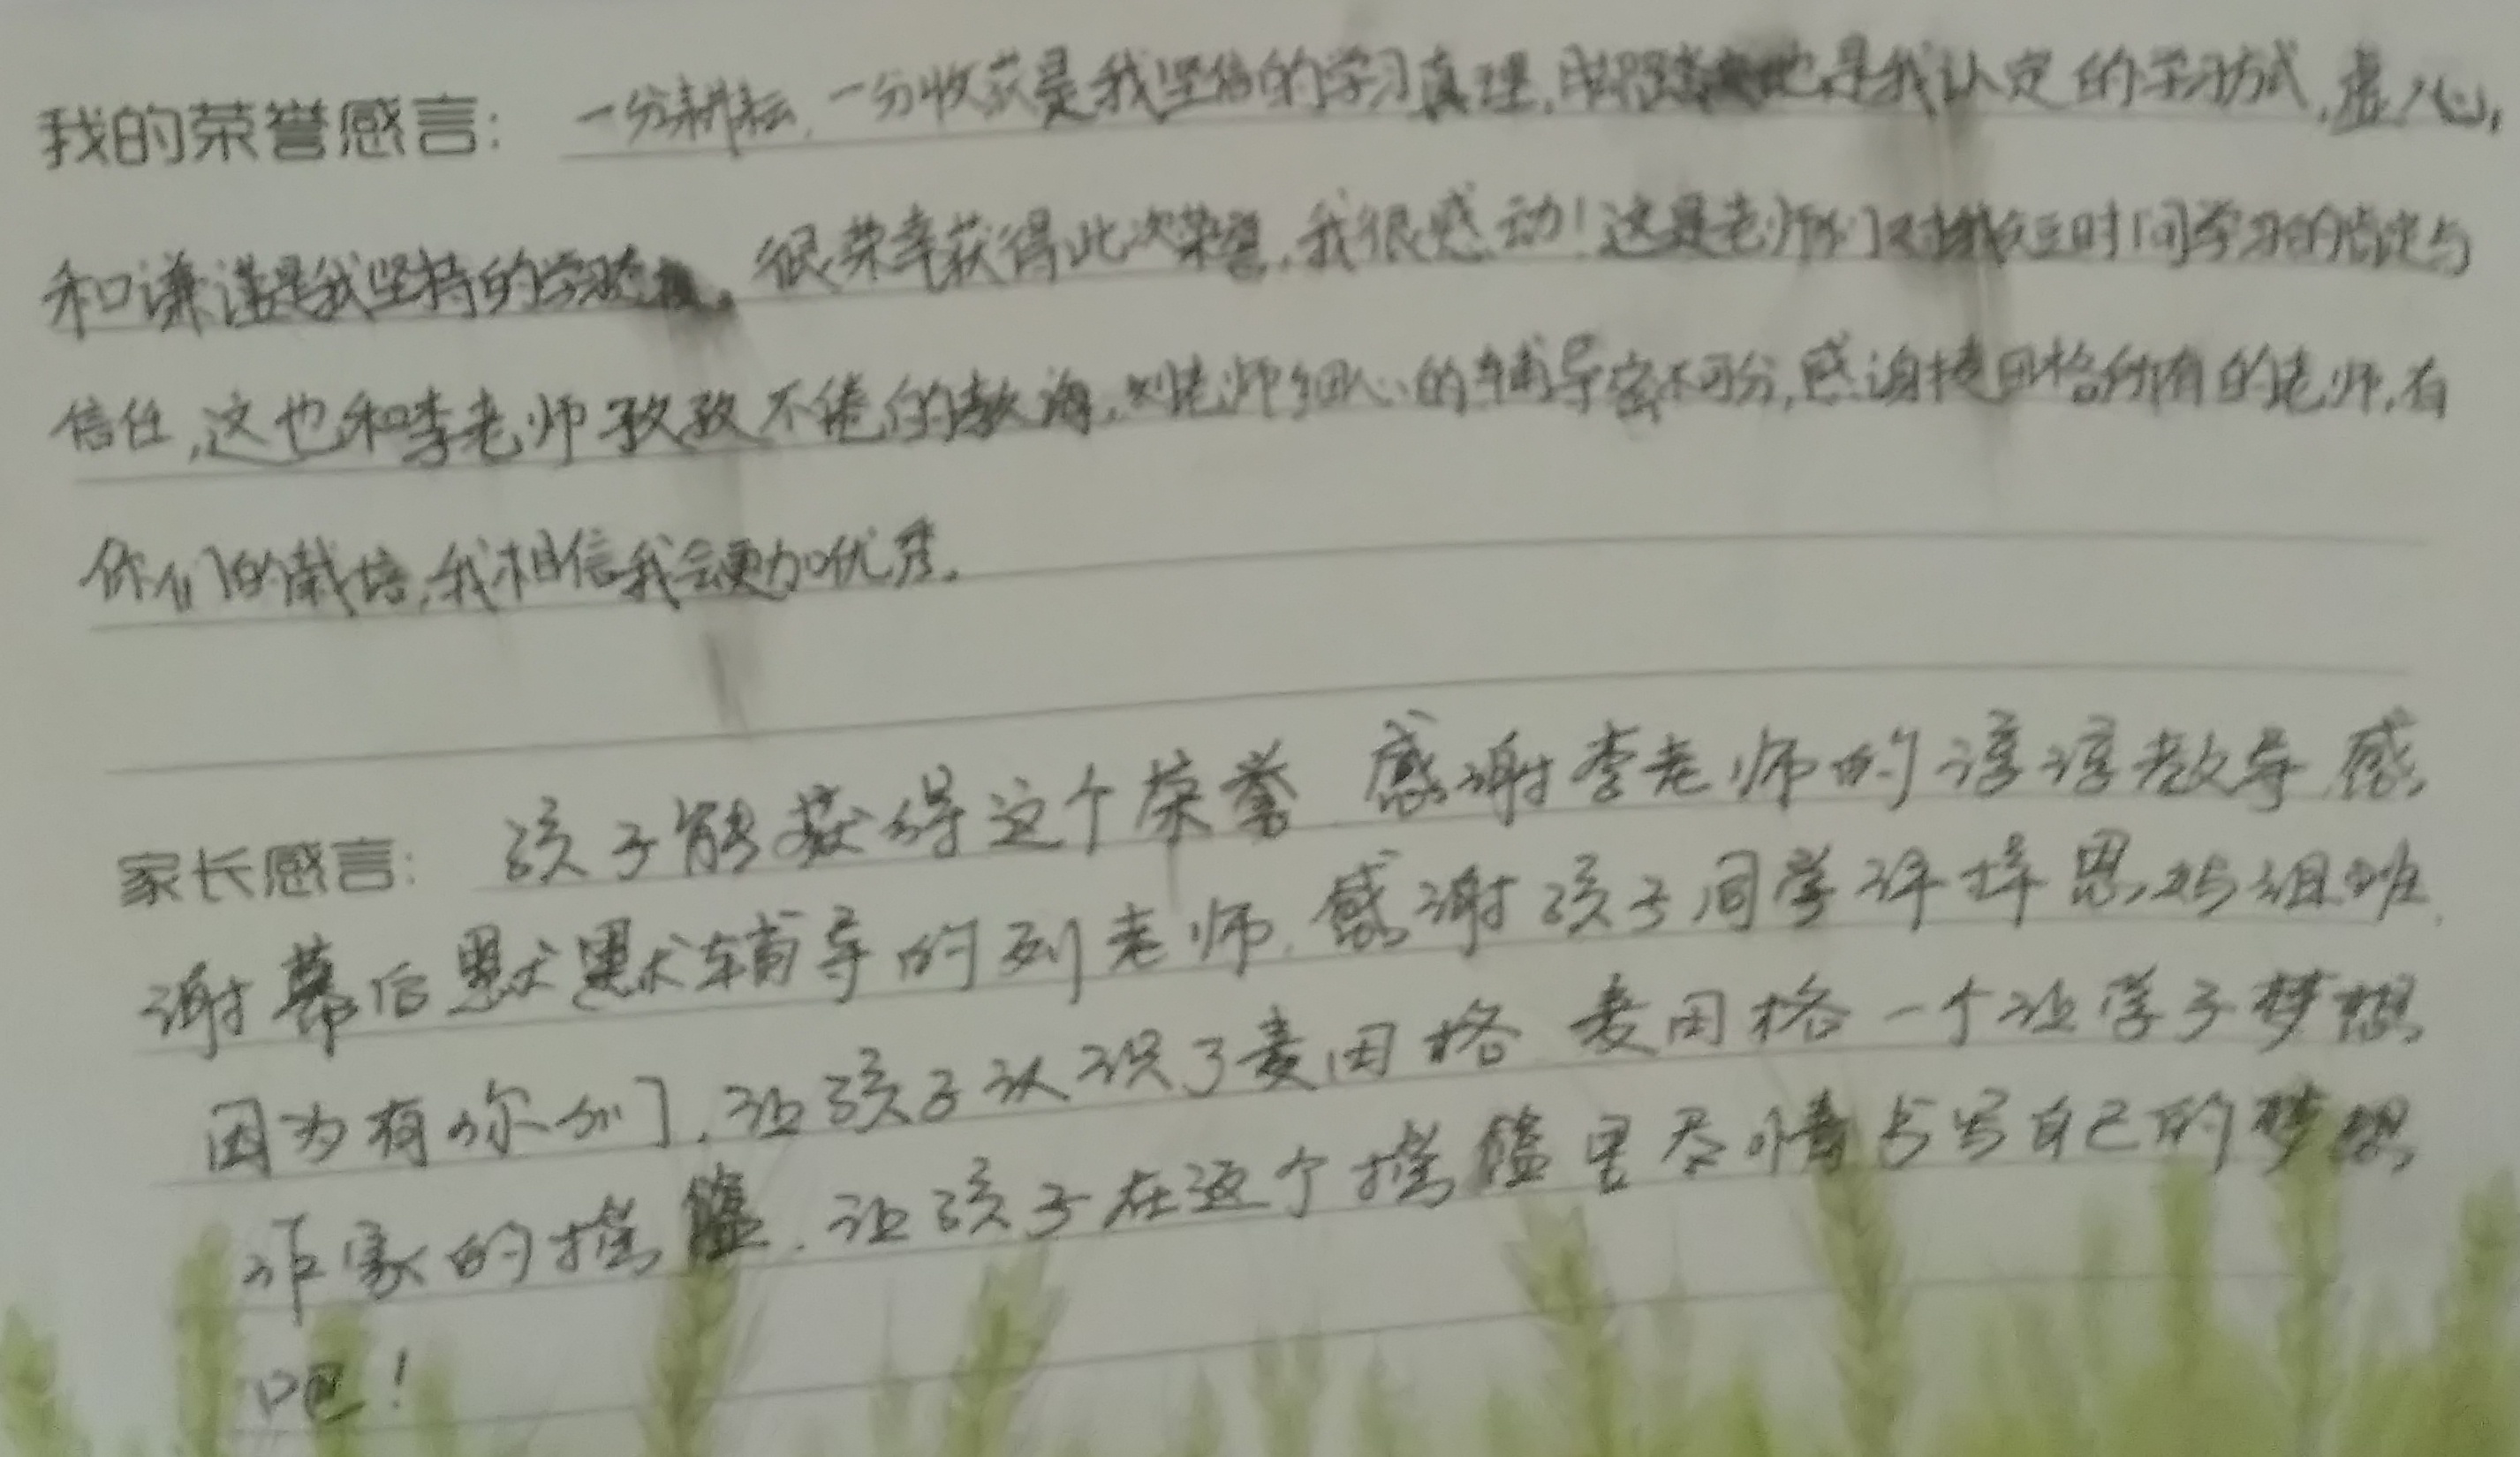 我的荣誉感言：一分耕耘,一分收获是我坚信的学习真理,脚踏实地是我认定的学习方式,虚心,
和谦逊是我坚持的学习态度。很荣幸获得此次荣誉,我很感动!这是老师们对我短时间学习的肯定与
信任,这也和李老师孜孜不倦的教诲,刘老师细心的辅导密不可分,感谢麦田格所有的老师,有
你们的栽培,我相信我会更加优秀。
家长感言：孩子能获得这个荣誉 感谢李老师的谆谆教导 感
谢幕后默默辅导的刘老师,感谢孩子同学 组班,
因为有你们,让孩子认识了麦田格 麦田格一个让学子梦想
作家的摇篮,让孩子在这个摇篮里尽情书写自己的梦想
吧!